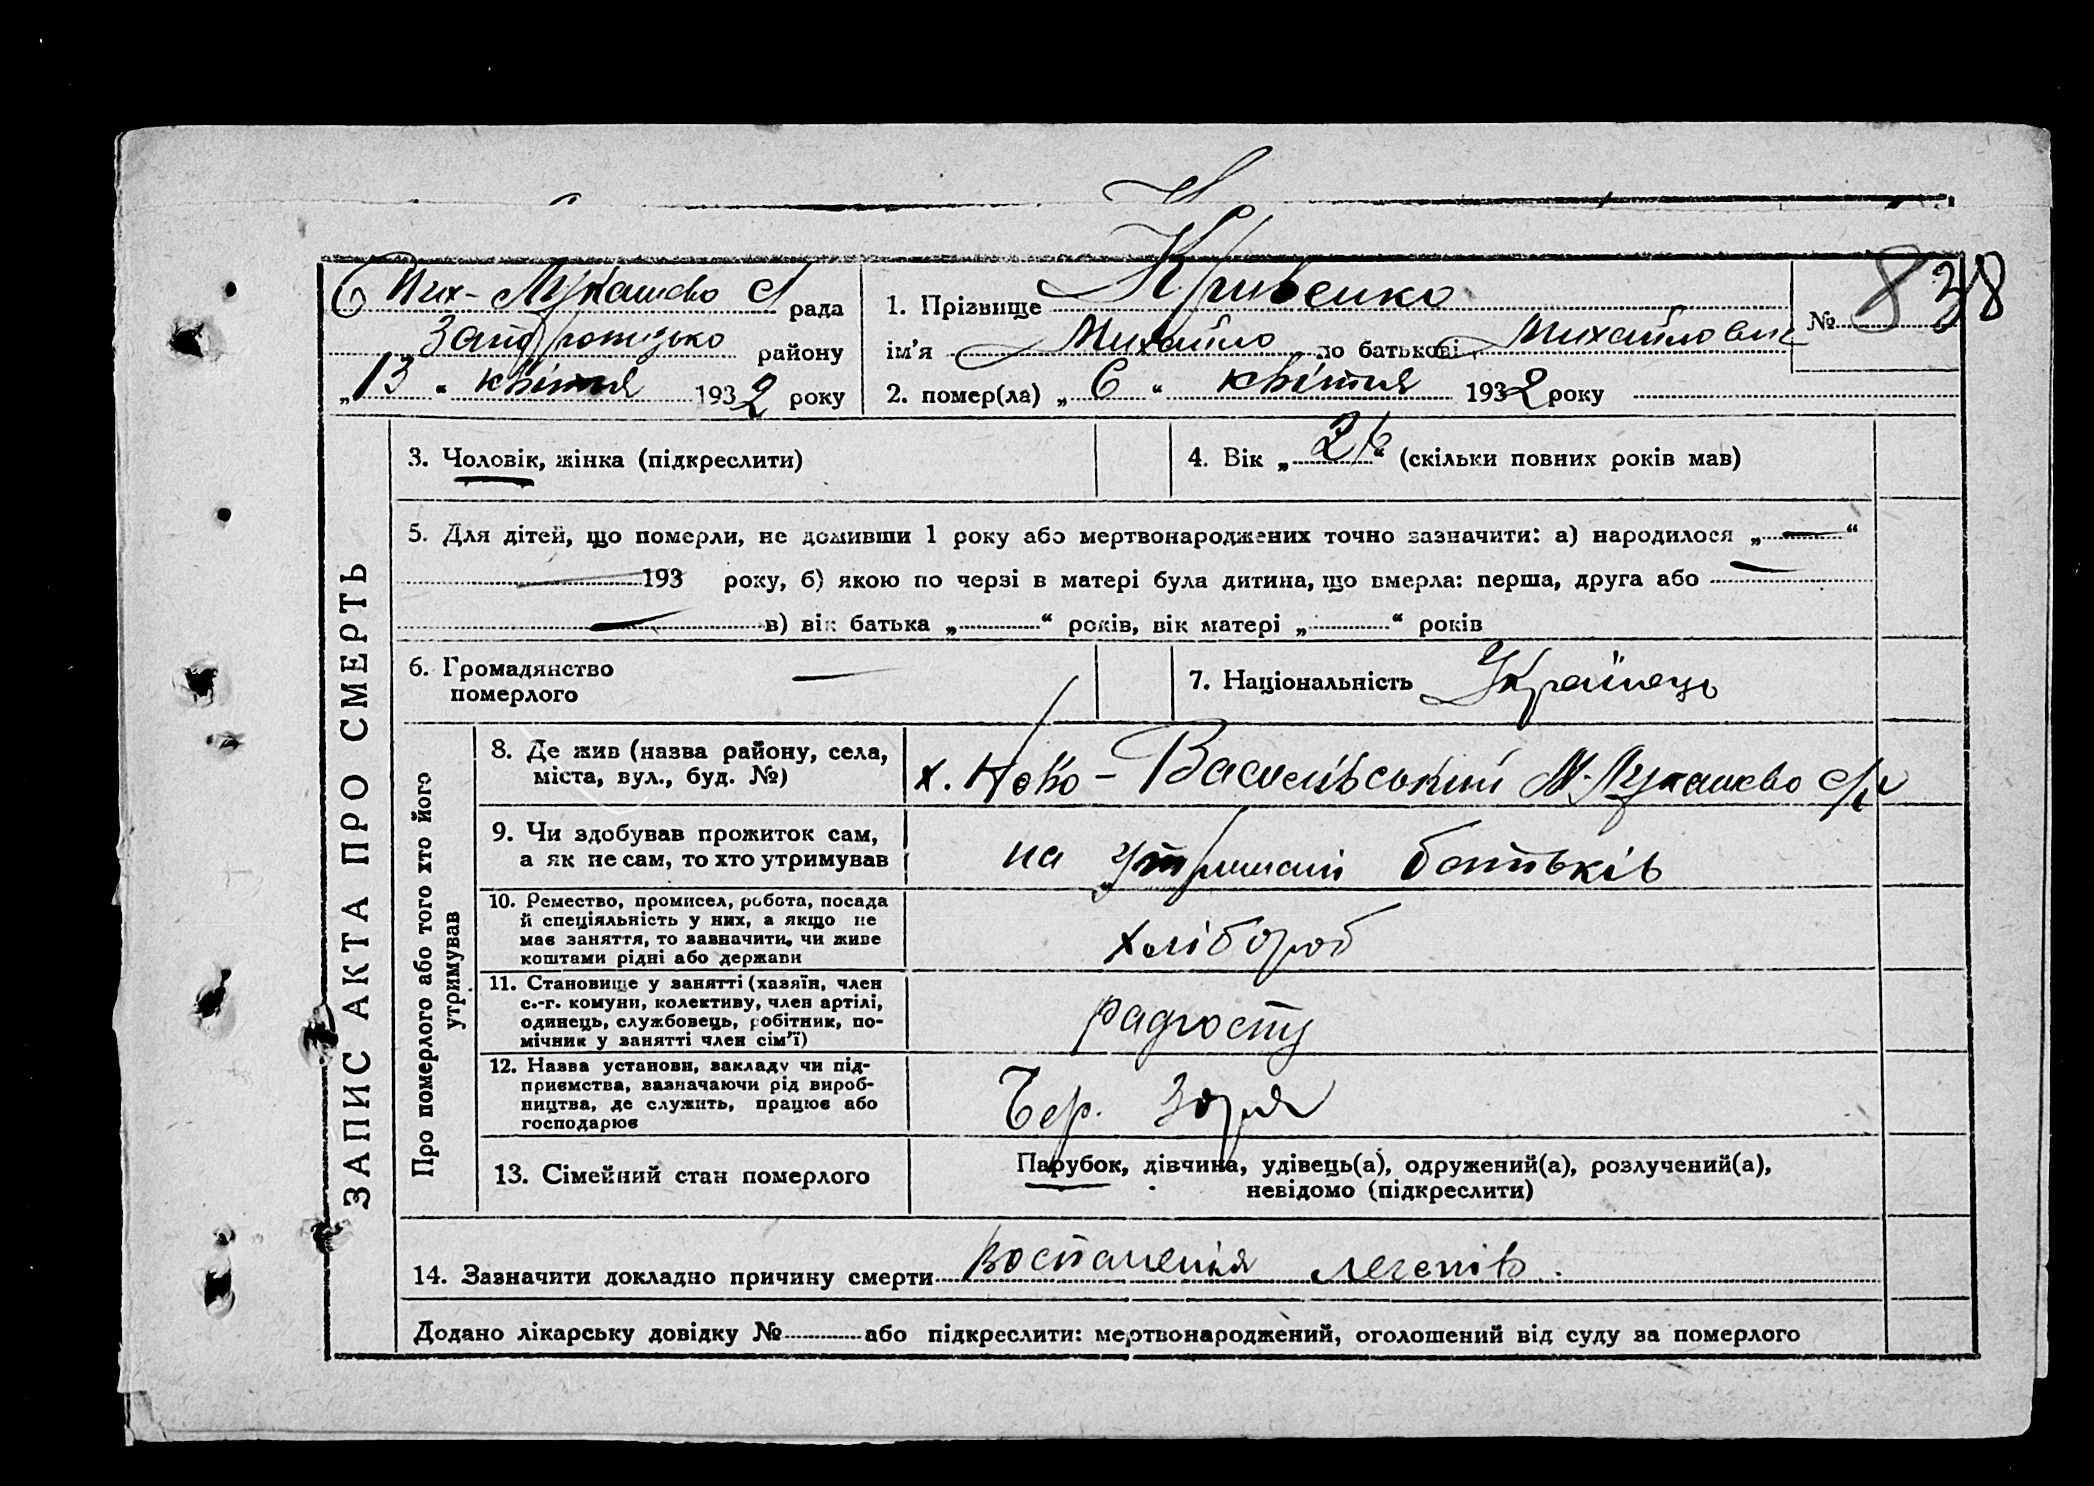 Мих-Лукашево С рада
Запорізько району
„13“ квітня 1932 року
1. Прізвище Кривенко
ім'я Михайло по батькові Михайлович
№ 38
2. помер(ла) „6“ квітня 1932 року
ЗАПИС АКТА ПРО СМЕРТЬ
3. Чоловік, жінка (підкреслити)
4. Вік „ “ (скільки повних років мав)
5. Для дітей, що померли, не доживши 1 року або мертвонароджених точно зазначити: а) народилося „—“
193 року, б) якою по черзі в матері була дитина, що вмерла: перша, друга або —
— в) вік батька „ “ років, вік матері „ “ років
6. Громадянство
померлого —
7. Національність Українець
Про померлого або того хто його
утримував
8. Де жив (назва району, села,
міста, вул., буд. №)
х. Ново-Василівський М-Лукашево с/р
9. Чи здобував прожиток сам,
а як не сам, то хто утримував
на утриманні батьків
10. Ремество, промисел, робота, посада
й спеціяльність у них, а якщо не
має заняття, то зазначити, чи живе
коштами рідні або держави
хлібороб
11. Становище у занятті (хазяїн, член
с.-г. комуни, колективу, член артілі,
одинець, службовець, робітник, по-
мічник у занятті член сім'ї)
радгоспу
12. Назва установи, закладу чи під-
приємства, зазначаючи рід вироб-
ництва, де служить, працює або
господарює
Чер. Зоря
13. Сімейний стан померлого
Парубок, дівчина, удівець(а), одружений(а), розлучений(а),
невідомо (підкреслити)
14. Зазначити докладно причину смерти воспаленія легенів.
Додано лікарську довідку № або підкреслити: мертвонароджений, оголошений від суду за померлого